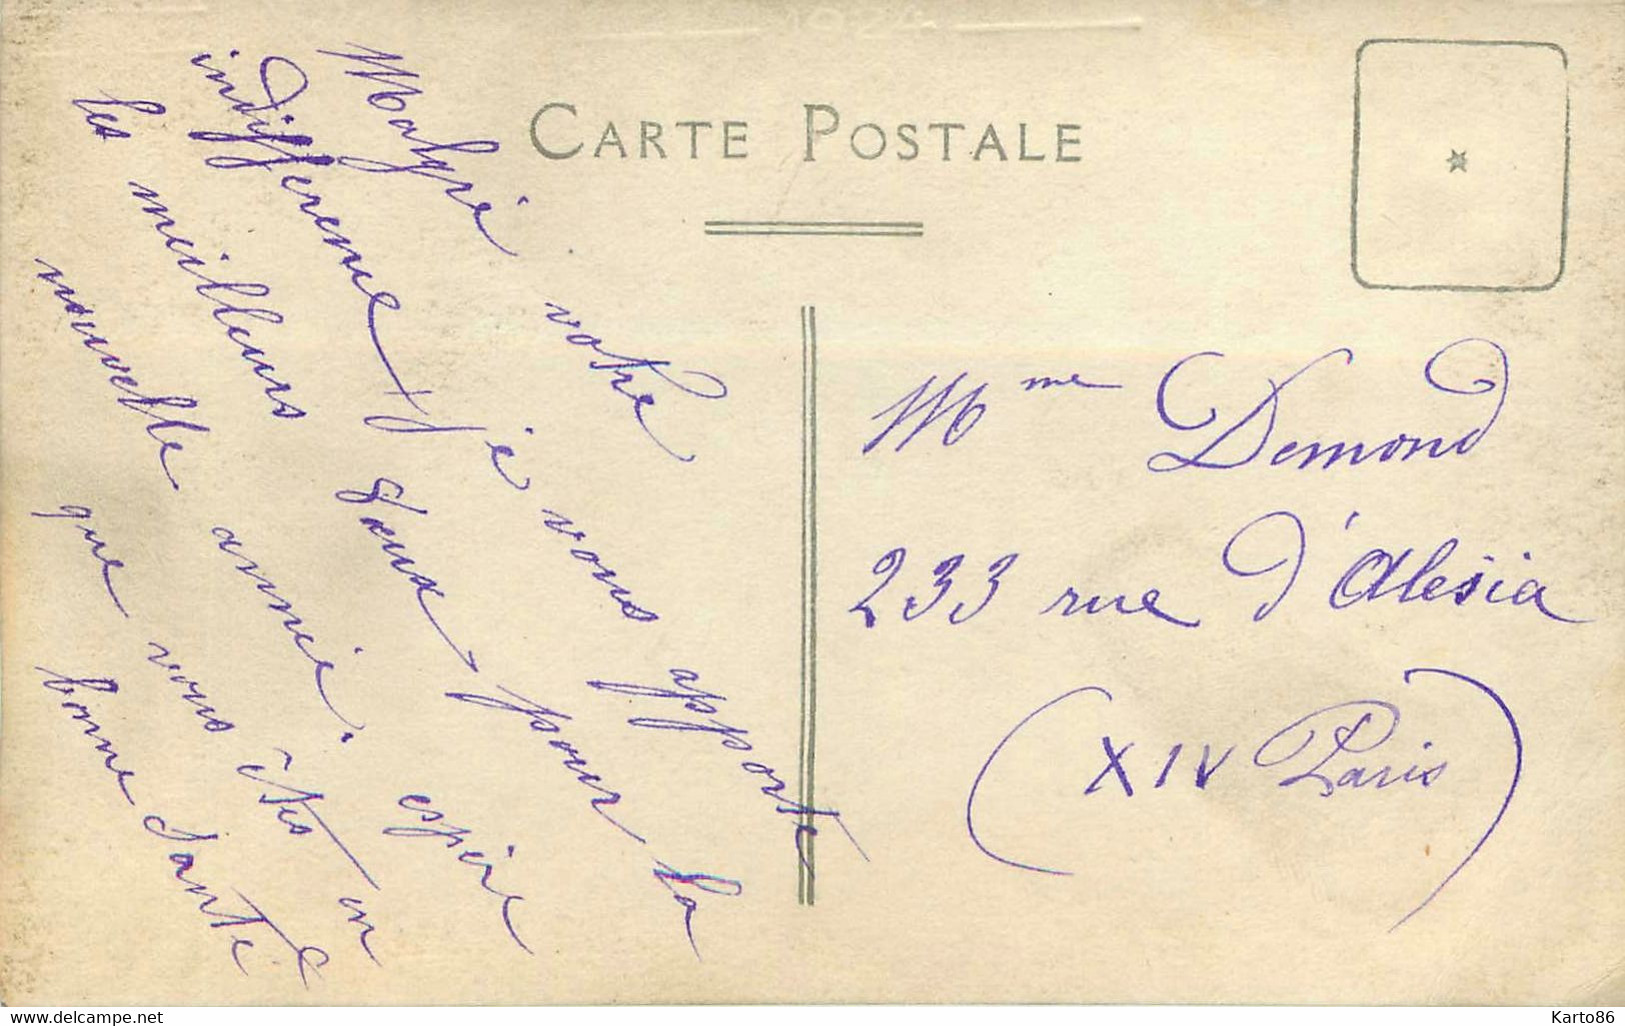 CARTE POSTALE
Malgré votre
indifference, je vous apporte
les meilleurs vœux pour la
nouvelle année. espère
que vous êtes en
bonne santé
Mme Demond
233 rue d'Alésia
(XIV Paris)
www.delcampe.net
Karto86